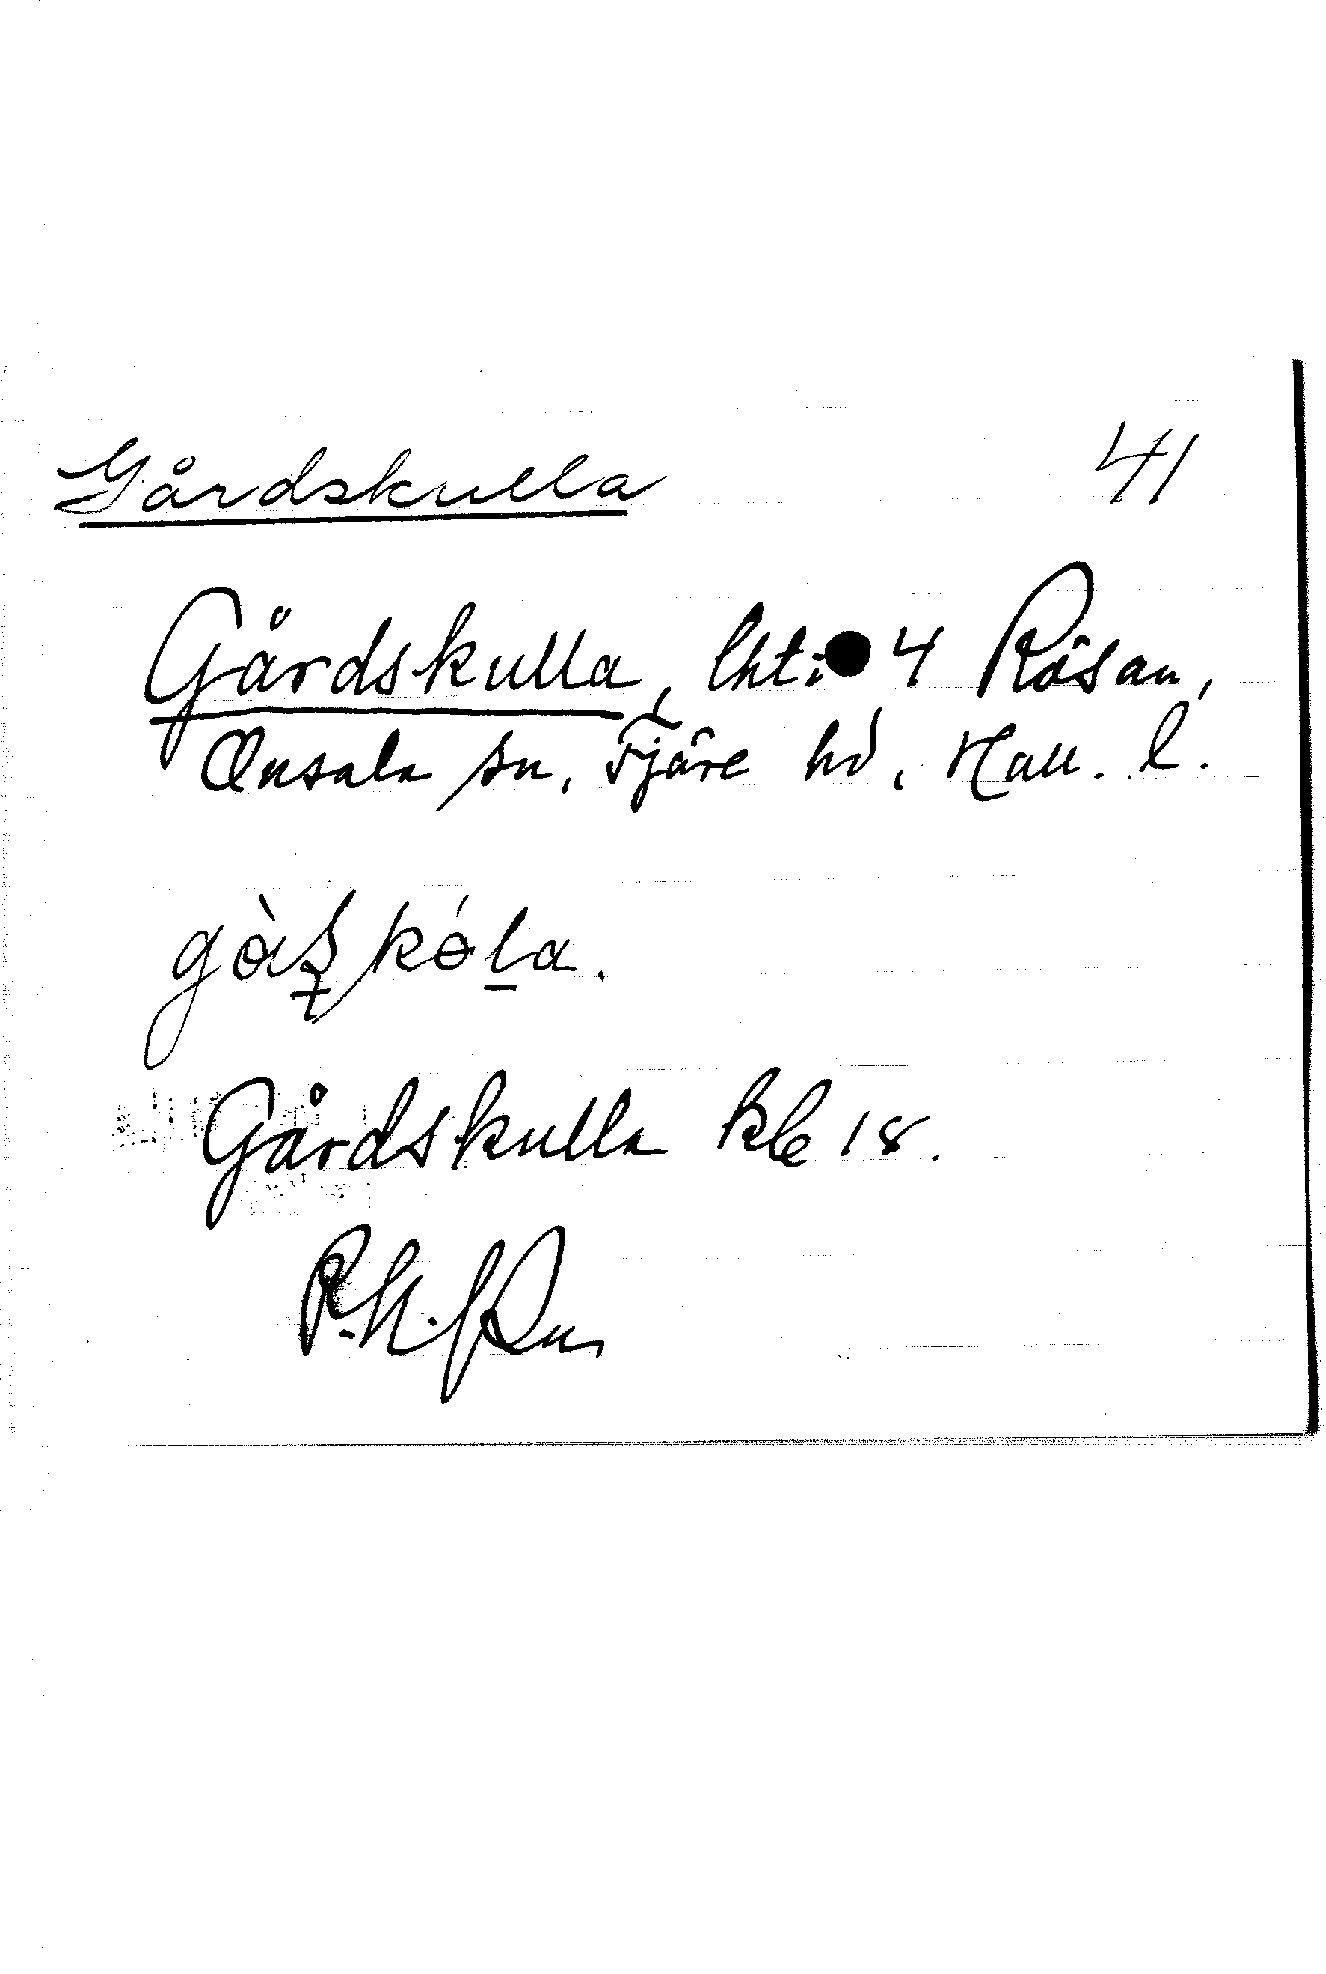 Gårdskulla 41
Gårdskulla, lht: 4 Råsan,
Onsala sn, Fjäre hd, Hall. l.
Gårdskulla kb 18.